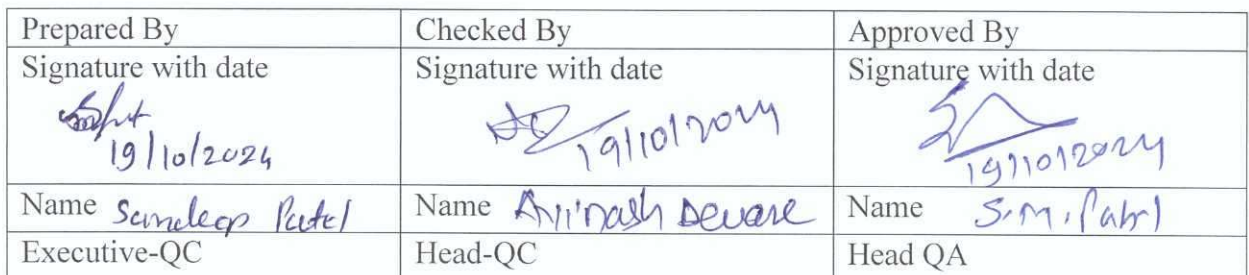 Prepared By Checked By Approved By
Signature with date Signature with date Signature with date
19/10/2024 19/10/2024 19/10/2024
Name Sandeep Patel Name Avinash Deware Name S.M. Patel
Executive-QC Head-QC Head QA